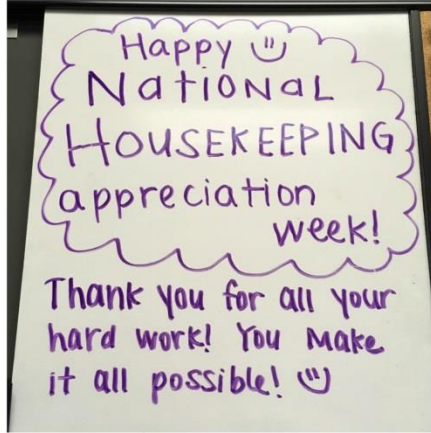 Happy
NaTIONaL
HOUSEKEEPING
appreciation
week!
Thank you for all your
hard work! You Make
it all possible!